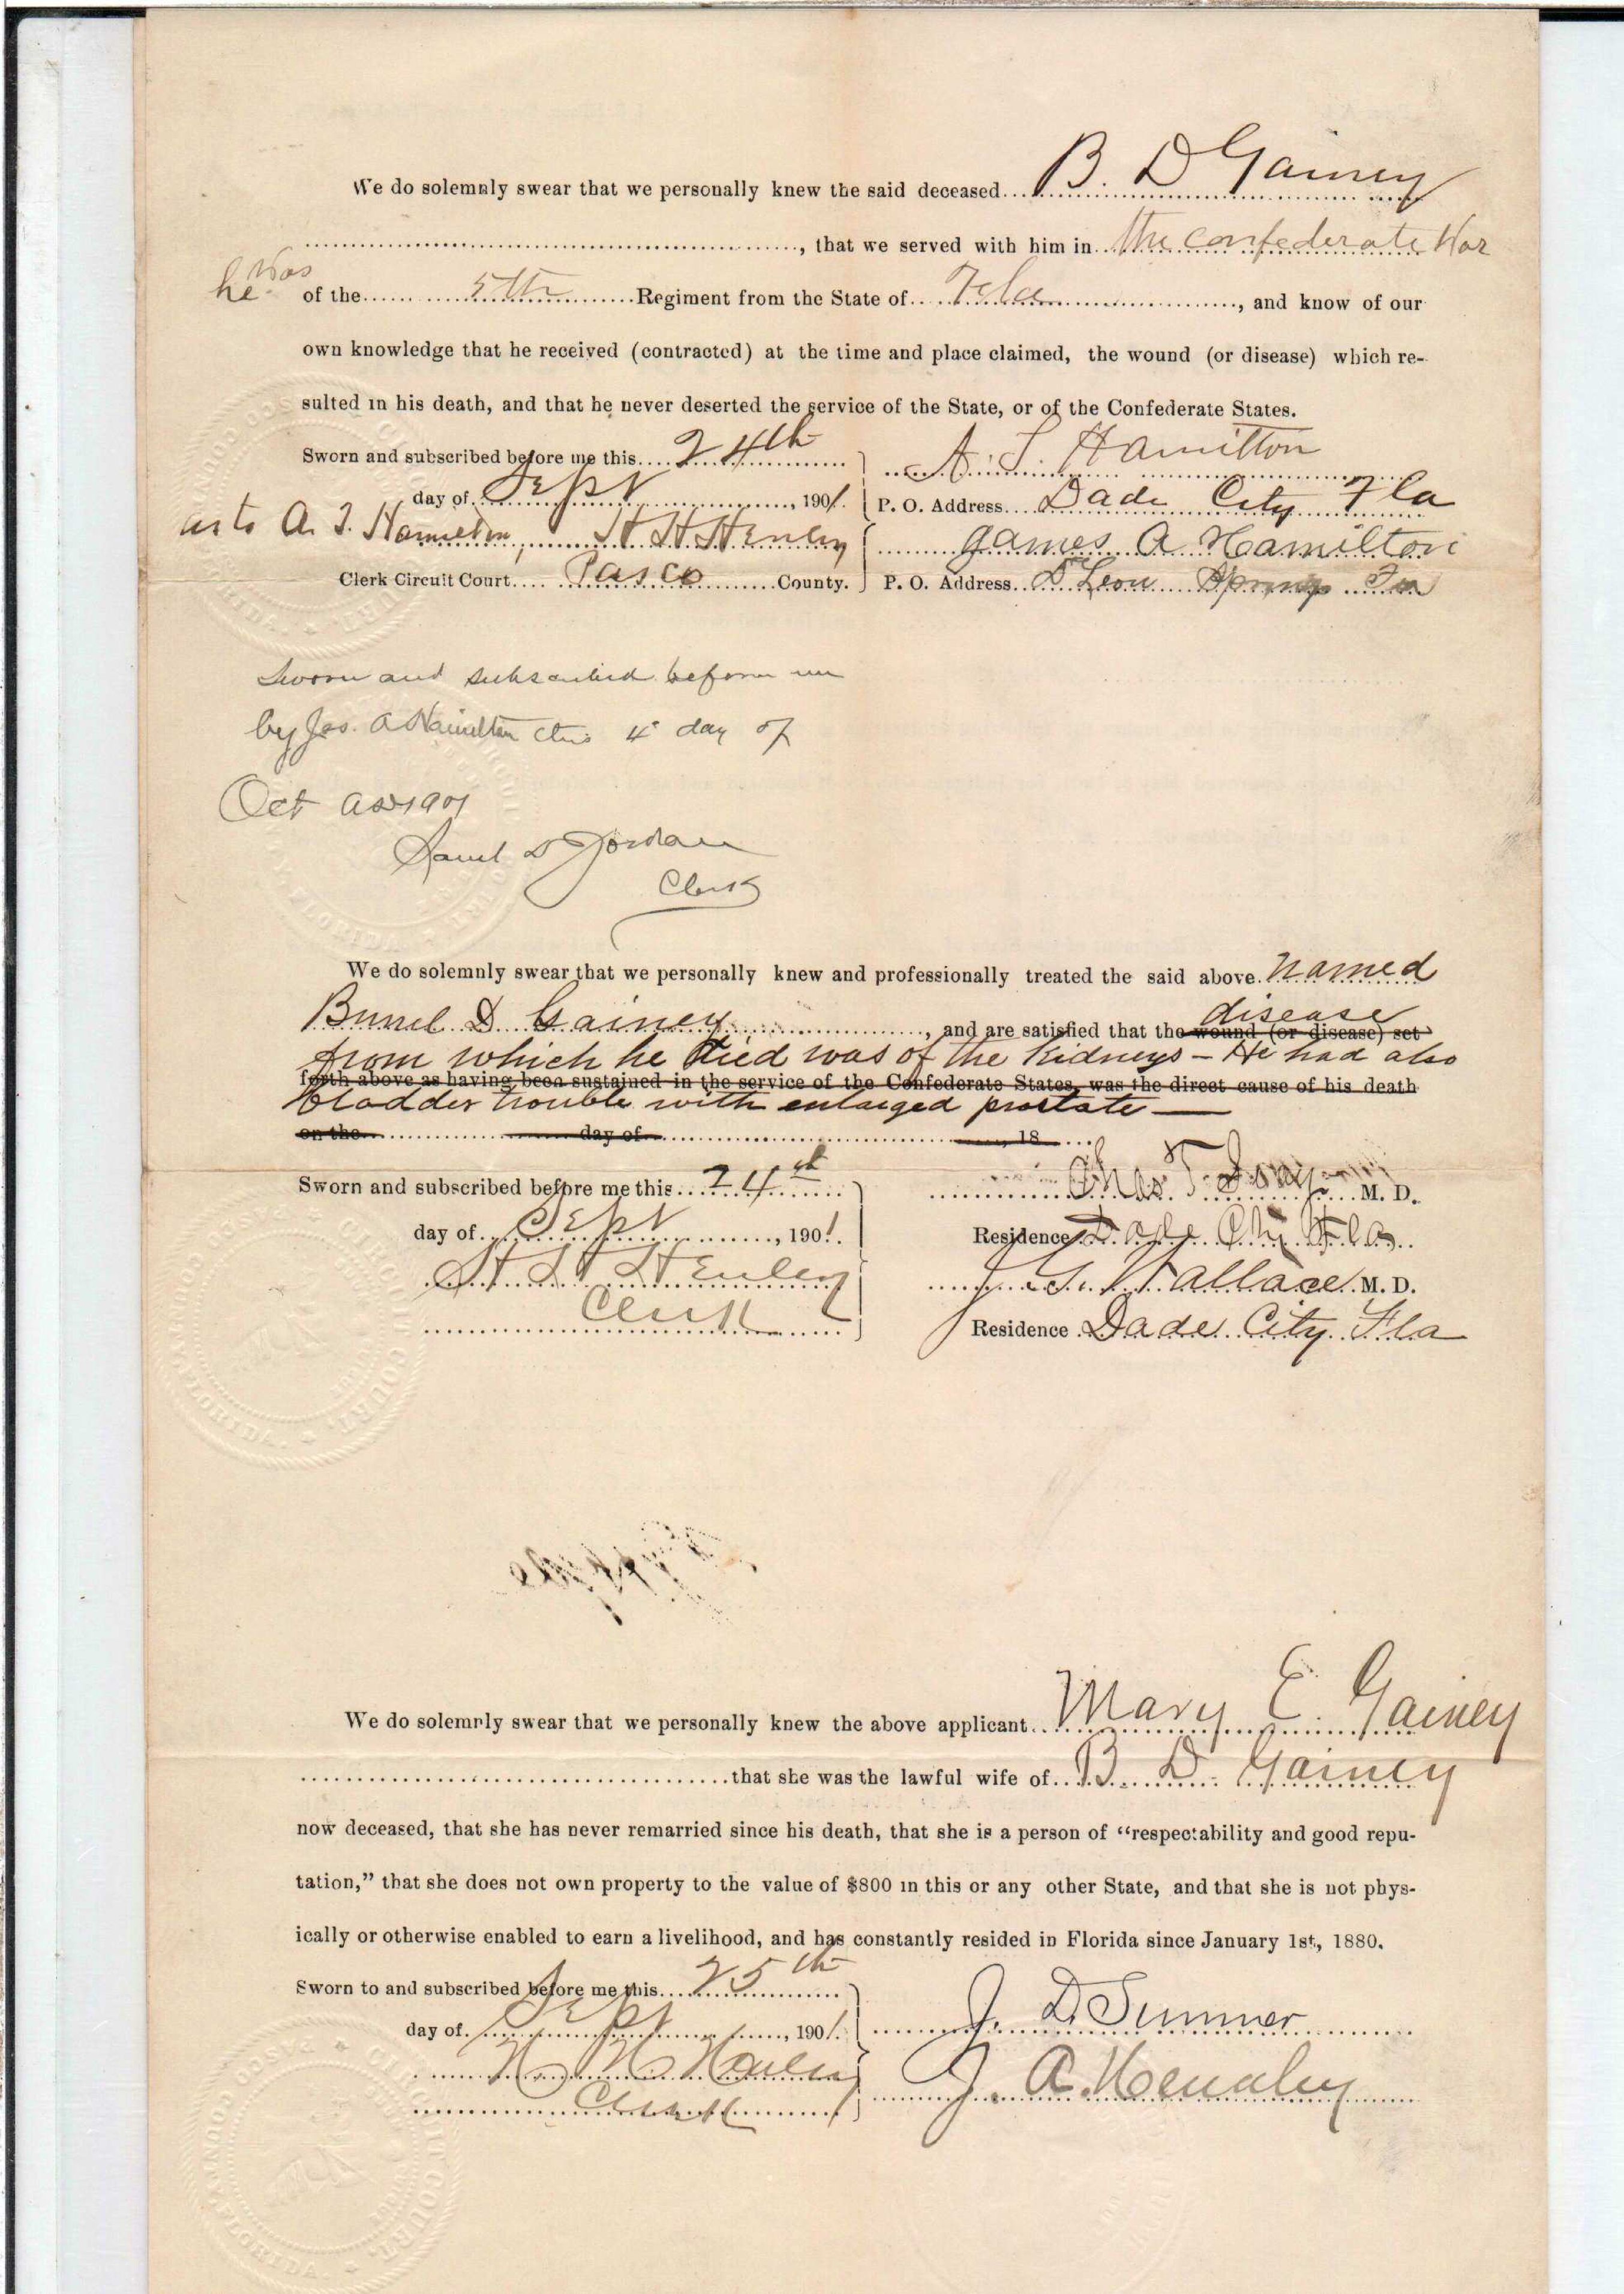 We do solemnly swear that we personally knew the said deceased B. D Gainey
, that we served with him in the confederate War
he was of the 5th Regiment from the State of Fla , and know of our
own knowledge that he received (contracted) at the time and place claimed, the wound (or disease) which re-
sulted in his death, and that he never deserted the service of the State, or of the Confederate States.
Sworn and subscribed before me this 24th
day of Sept , 1901.
as to A. T. Hamilton, H H Henley
Clerk Circuit Court Pasco County.
A. T. Hamilton
P. O. Address Dade City Fla
James A Hamilton
P. O. Address De Leon Springs Fla
Sworn and subscribed before me
by Jas. A Hamilton this 4" day of
Oct AD 1901
Saml D Jordan
Clerk
We do solemnly swear that we personally knew and professionally treated the said above named
Burrel D. Gainey , and are satisfied that the wound (or disease) set
disease
from which he died was of the Kidneys – He had also
forth above as having been sustained in the service of the Confederate States, was the direct cause of his death
bladder trouble with enlarged prostate —
on the day of , 18
Sworn and subscribed before me this 24th
day of Sept , 1901.
H H Henley
Clerk
Chas. T. M. D.
Residence Dade City Fla
J. G. Wallace M. D.
Residence Dade City Fla
We do solemnly swear that we personally knew the above applicant Mary E. Gainey
that she was the lawful wife of B. D. Gainey
now deceased, that she has never remarried since his death, that she is a person of "respectability and good repu-
tation," that she does not own property to the value of $800 in this or any other State, and that she is not phys-
ically or otherwise enabled to earn a livelihood, and has constantly resided in Florida since January 1st, 1880.
Sworn to and subscribed before me this 25th
day of Sept , 1901.
H H Henley
Clerk
J. D. Sumner
J. A. Hendley